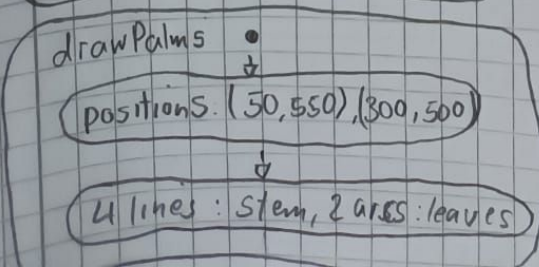 drawPalms
positions: (50,550),(300,500)
4 lines: stem, 2 arcs: leaves